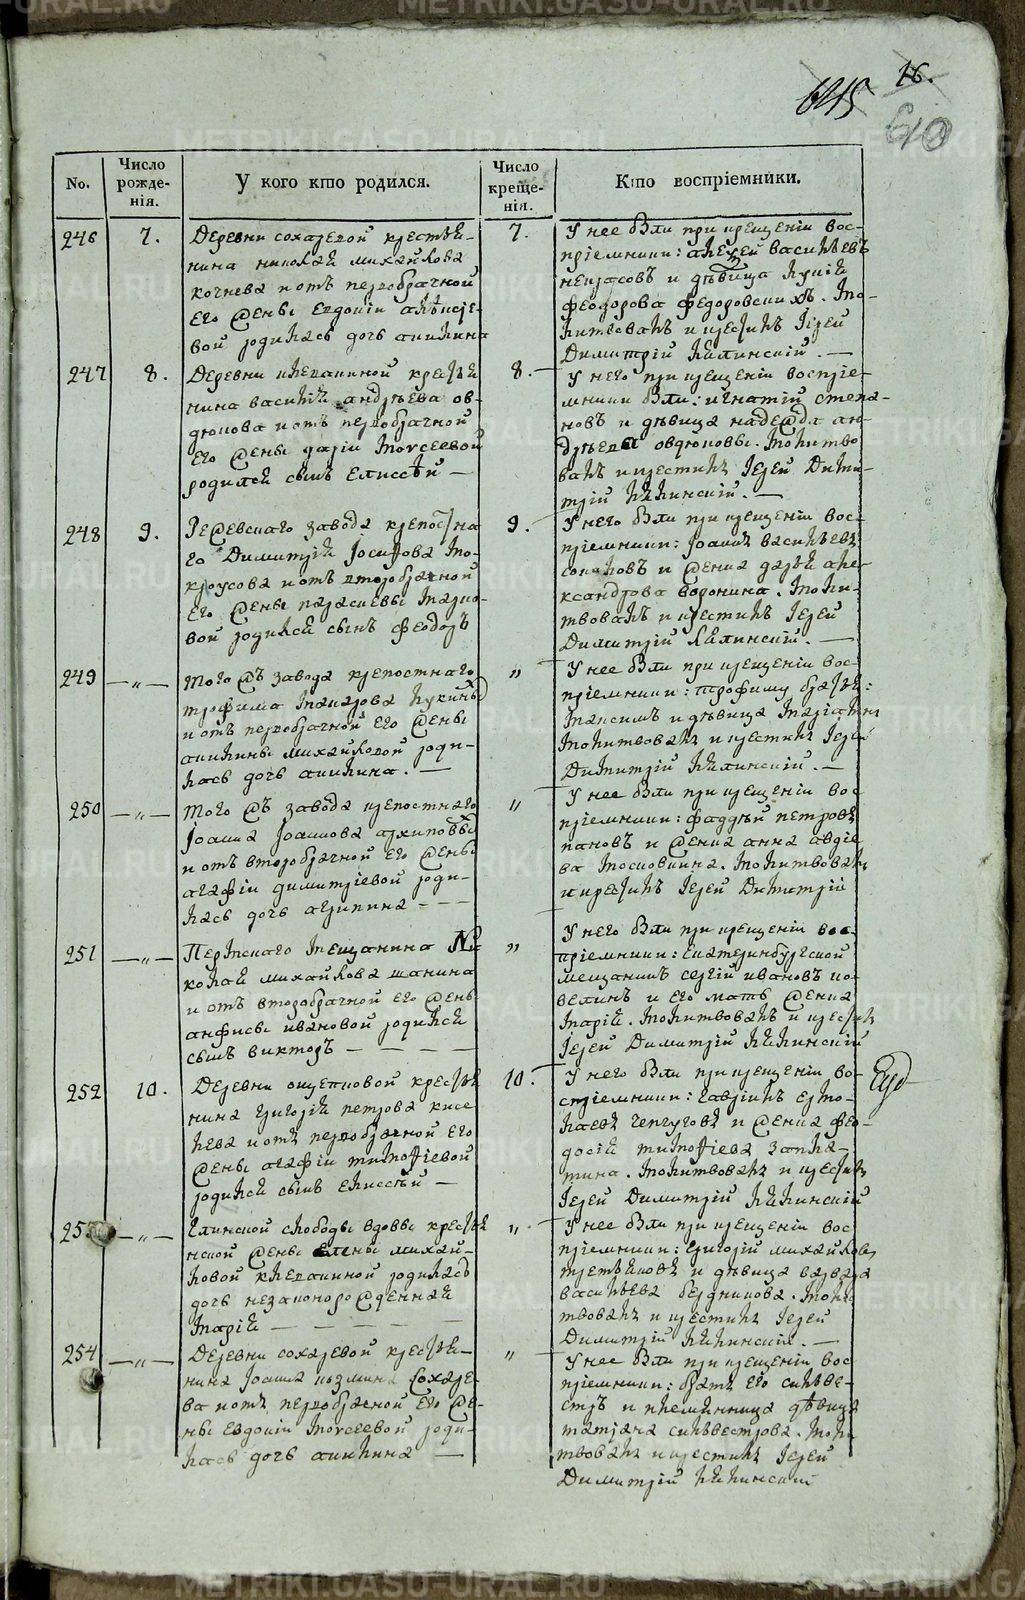 16.
615
610
No.
Число рожденія.
У кого кто родился.
Число крещенія.
Кто воспріемники.
246
7.
Деревни сохаревой крестья-
нина николая михайлова
кочнева и отъ первобрачной
его жены Евдокіи алѣксѣе-
вой родилась дочь акилина
7.
У нее были при крещеніи вос-
пріемники: алексѣй васильевъ
некрасовъ и дѣвица
феодорова федоровскихъ. Мо-
литвовалъ и крестилъ Іерей
Димитрій
247
8.
Деревни клевакиной крестья
нина василія андрѣева ов-
дюкова и отъ первобрачной
его жены даріи моѵсеевой
родился сынъ Елиссѣй —
8.
У него при крещеніи воспріе-
мники были: игнатій степа-
новъ и дѣвица надежда ан-
дрѣева овдюковы. Молитво
валъ и крестилъ Іерей Дими-
трій
248
9.
Режевскаго завода крепостна
го Димитрія Іосифова мо-
кроусова и отъ второбрачной
его жены параскевы макаро-
вой родился сынъ феодоръ
9.
У него были при крещеніи вос-
пріемники: Іоаннъ васильевъ
соколовъ и женка дарья але-
ксандрова воронина. Моли-
твовалъ и крестилъ Іерей
Димитрій
249
—„—
того жъ завода крепостнаго
трофима макарова лукиныхъ
и отъ первобрачной его жены
акилины михайловой роди-
лась дочь акилина. —
„
У нее были при крещеніи вос-
пріемники: трофиму братья:
максимъ и дѣвица
Молитвовалъ и крестилъ Іерей
Димитрій
250
—„—
того жъ завода крепостнаго
Іоанна Іоаннова архиповыхъ
и отъ второбрачной его жены
агафіи димитріевой роди-
лась дочь агрипина - - -
„
У нее были при крещеніи вос
пріемники: фаддѣй петровъ
пановъ и женка анна авдіе
ва московкина. Молитвовалъ
и крестилъ Іерей Димитрій
251
—„—
Пермскаго мещанина Ни
колая михайлова шанина
и отъ второбрачной его жены
анфисы ивановой родился
сынъ викторъ — — — —
„
У него были при крещеніи вос-
пріемники: Екатеринбургской
мещанинъ сергій ивановъ по-
велинъ и его мать женка
марія. Молитвовалъ и крестилъ
Іерей Димитрій
252
10.
Деревни ощепковой крестья
нина григорія петрова кисе
лева и отъ первобрачной его
жены агафіи тимофіевой
родился сынъ Елиссѣй —
10.
У него были при крещеніи во-
спріемники: гавріилъ ермо-
лаевъ чепчуговъ и женка фео-
досія тимофіева запла-
тина. Молитвовалъ и крестилъ
Іерей Димитрій
253
—„—
Глинской слободы вдовы крестья
нской жены Елены михай-
ловой клевакиной родилась
дочь незаконорожденная
марія — — — —
„
У нее были при крещеніи вос
пріемники: григорій михайловъ
третьяковъ и дѣвица варвара
васильева бердникова. Моли
твовалъ и крестилъ Іерей
Димитрій
254
—„—
Деревни сохаревой крестья-
нина Іоанна козмина сохаре-
ва и отъ первобрачной его же-
ны Евдокіи моѵсеевой роди-
лась дочь акилина —
„
У нее были при крещеніи вос
пріемники: братъ его сильве-
стръ и племянница дѣвица
татіана сильвестрова. Моли
твовалъ и крестилъ Іерей
Димитрій